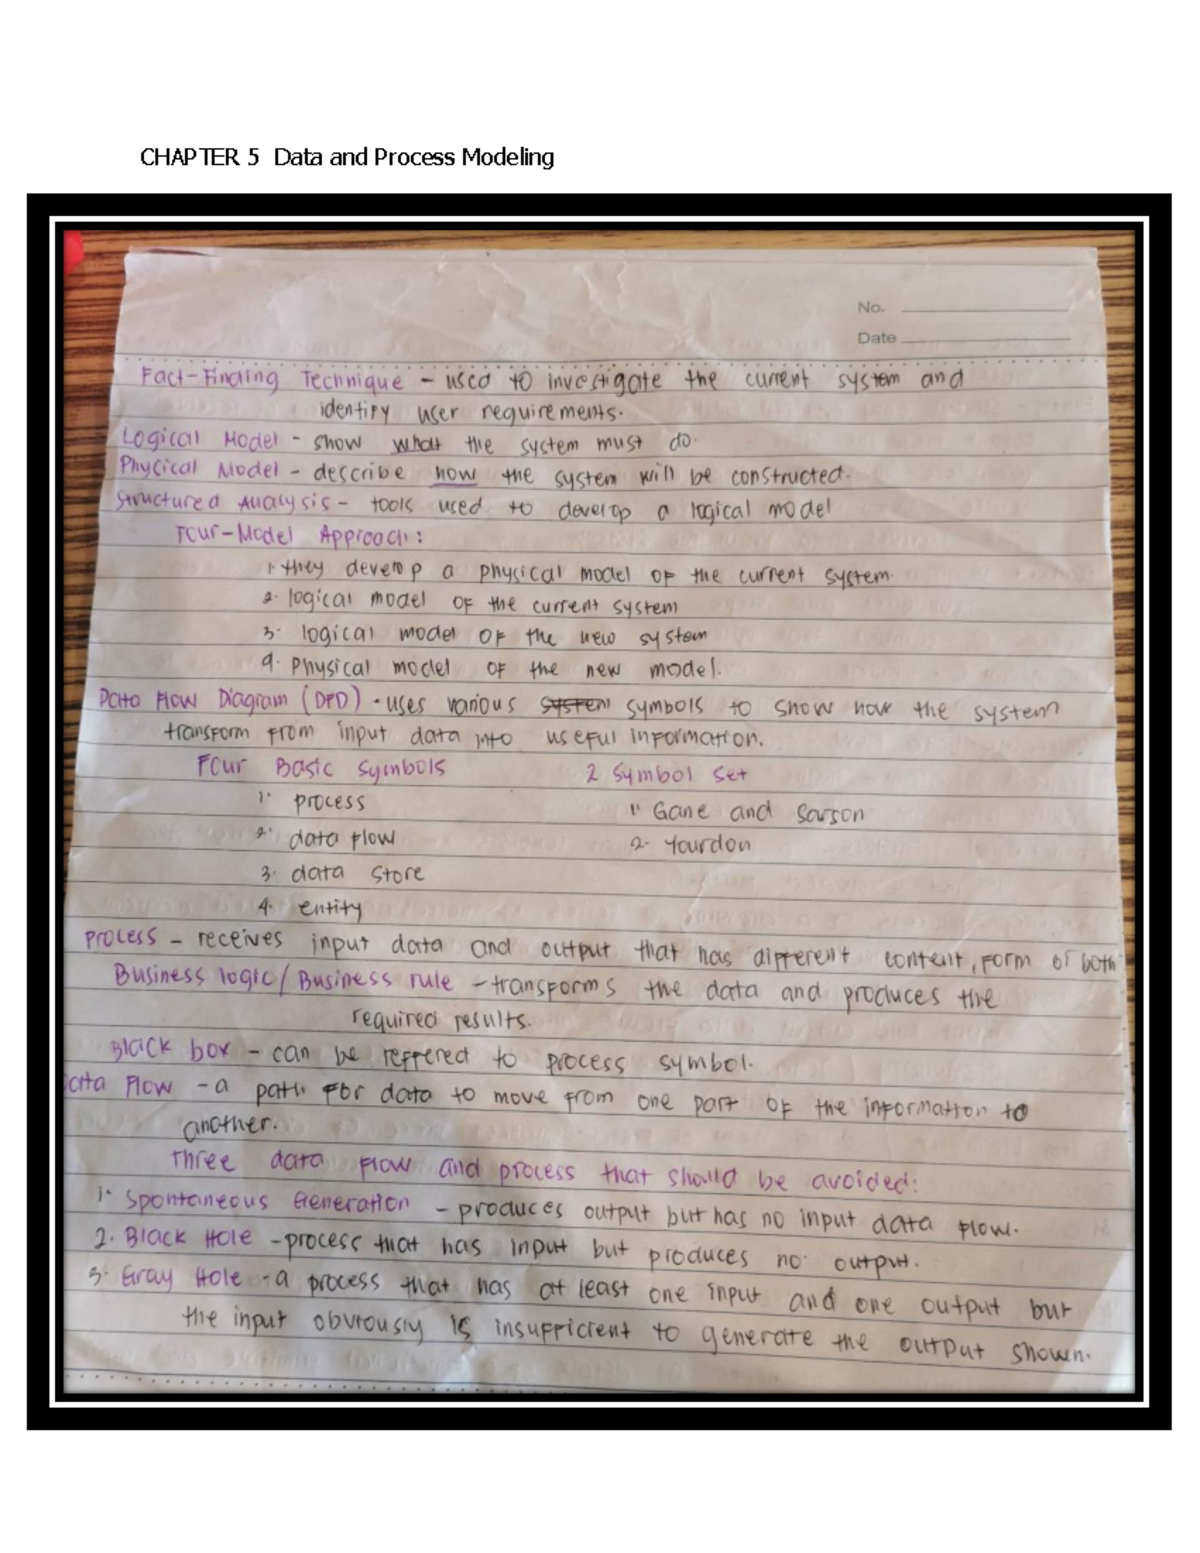 CHAPTER 5 Data and Process Modeling
No.
Date
Fact-Finding Technique - used to investigate the current system and
identify user requirements.
Logical Model - show what the system must do.
Physical Model - describe how the system will be constructed.
Structured Analysis - tools used to develop a logical model
Four-Model Approach:
1. they develop a physical model of the current system.
2. logical model of the current system
3. logical model of the new system
4. physical model of the new model.
Data Flow Diagram (DFD) - uses various system symbols to show how the system
transform from input data into useful information.
Four Basic Symbols 2 Symbol Set
1. process 1. Gane and Sarson
2. data flow 2. Yourdon
3. data store
4. entity
Process - receives input data and output that has different content, form or both
Business logic / Business rule - transforms the data and produces the
required results.
Black box - can be reffered to process symbol.
Data Flow - a path for data to move from one part of the information to
another.
Three data flow and process that should be avoided:
1. Spontaneous Generation - produces output but has no input data flow.
2. Black Hole - process that has input but produces no output.
3. Gray Hole - a process that has at least one input and one output but
the input obviously is insufficient to generate the output shown.